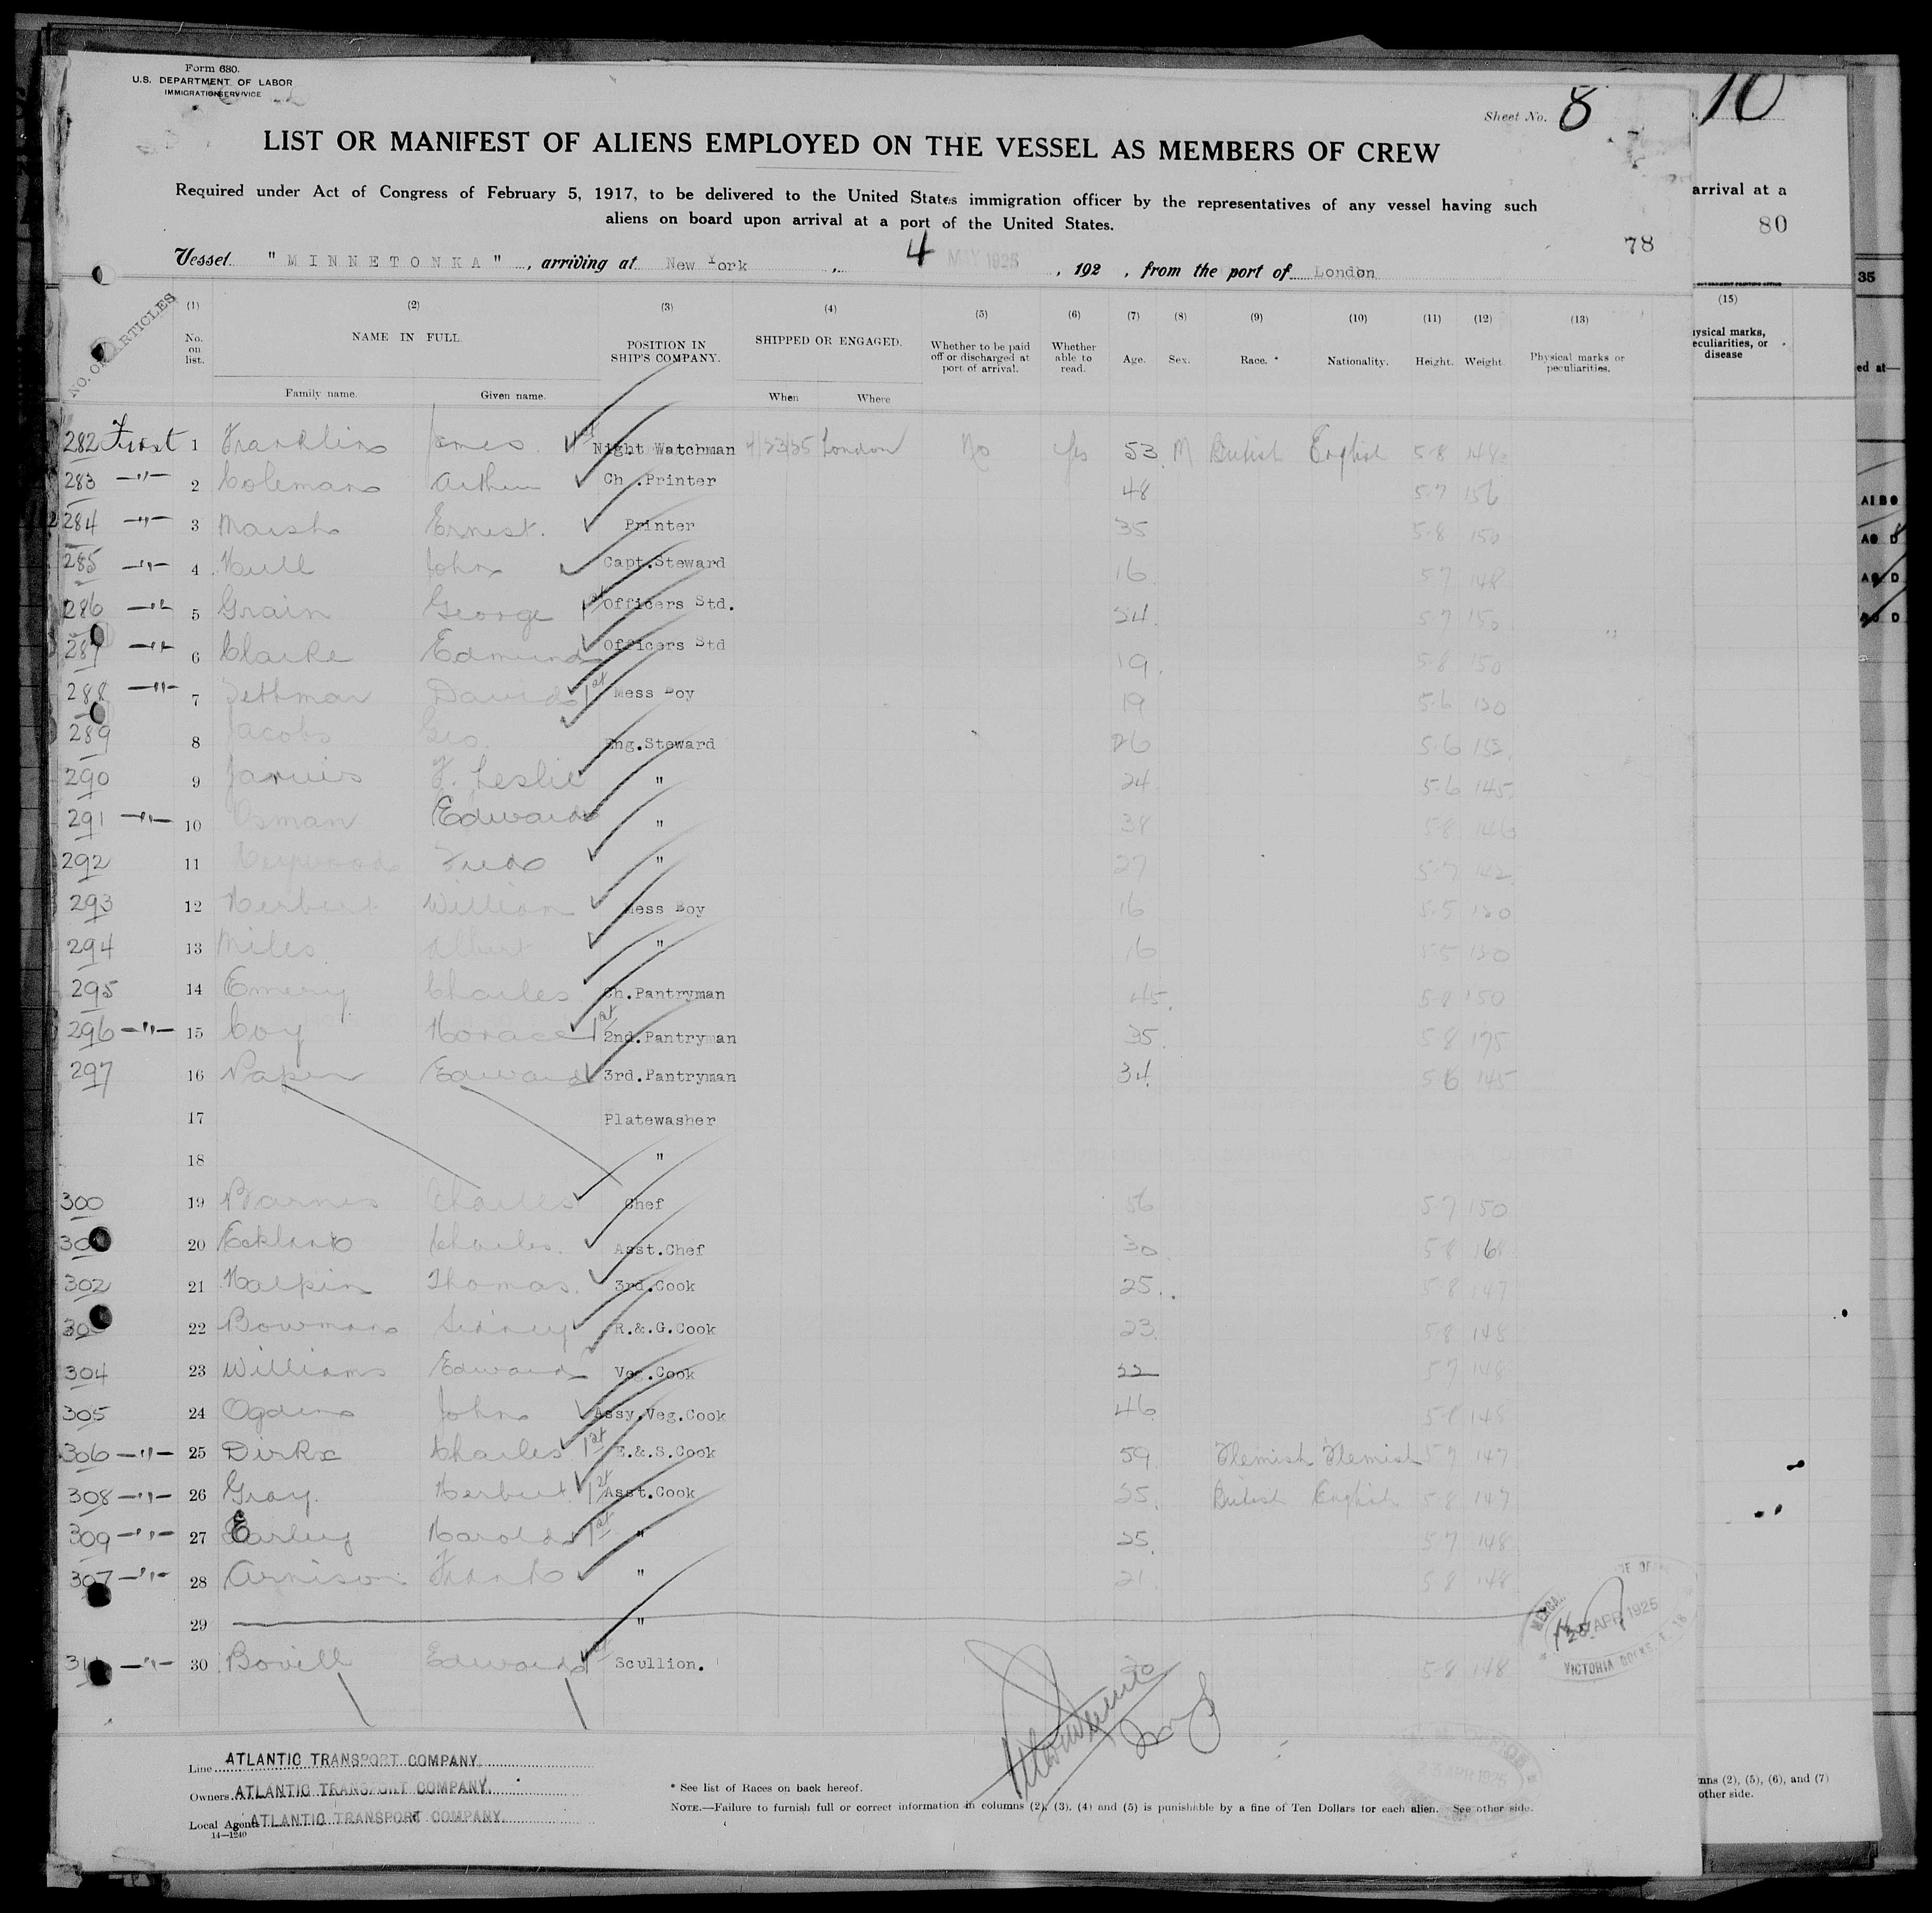 Form 680.
U.S. DEPARTMENT OF LABOR
IMMIGRATION SERVICE
Sheet No. 8
10
LIST OR MANIFEST OF ALIENS EMPLOYED ON THE VESSEL AS MEMBERS OF CREW
Required under Act of Congress of February 5, 1917, to be delivered to the United States immigration officer by the representatives of any vessel having such
aliens on board upon arrival at a port of the United States.
arrival at a
80
78
Vessel "MINNETONKA", arriving at New York, 4 MAY 1925, 192 , from the port of London
35
NO. OF ARTICLES
(1) (2) (3) (4) (5) (6) (7) (8) (9) (10) (11) (12) (13) (15)
No. on list. NAME IN FULL POSITION IN SHIP'S COMPANY. SHIPPED OR ENGAGED. Whether to be paid off or discharged at port of arrival. Whether able to read. Age. Sex. Race. * Nationality. Height. Weight. Physical marks or peculiarities.
ysical marks,
eculiarities, or
disease
ed at—
Family name. Given name. When Where
282 First 1 Franklin James 1st Night Watchman 4/23/25 London No Yes 53 M British English 5-8 148
283 —"— 2 Coleman Arthur Ch.Printer 48 5-7 156
284 —"— 3 Marsh Ernest. Printer 35 5-8 150
285 —"— 4 Hull John Capt.Steward 16 5-7 148
286 —"— 5 Grain George 1st Officers Std. 24 5-7
287 —"— 6 Clarke Edmund Officers Std 19 5-8 150
288 —"— 7 David 1st Mess Boy 19 5-6 130
289 8 Jacobs Geo. Eng.Steward 26 5-6
290 9 Jarvis F. Leslie " 24 5-6 145
291 —"— 10 Osman Edward " 38 5-8 146
292 11 Heywood Fred " 27 5-7 142
293 12 Herbert William Mess Boy 16 5-5 130
294 13 Miles Albert " 16 5-5 130
295 14 Emery Charles Ch.Pantryman 45 5-8 150
296 —"— 15 Coy Horace 1st 2nd.Pantryman 35 5-8 175
297 16 Edward 3rd.Pantryman 34 5-6 145
17 Platewasher
18 "
300 19 Barnes Charles Chef 56 5-7 150
30 20 Charles Asst.Chef 30 5-8 168
302 21 Halpin Thomas. 3rd.Cook 25 5-8 147
30 22 Bowman Sidney R.&.G.Cook 23 5-8 148
304 23 Williams Edward Veg.Cook 22 5-7 148
305 24 Ogden John Assy.Veg.Cook 46 5-8 148
306 —"— 25 Dirkx Charles 1st E.&.S.Cook 59 Flemish Flemish 5-7 147
308 —"— 26 Gray. Herbert 1st Asst.Cook 25 British English 5-8 147
309 —"— 27 Earley Harold 1st " 25 5-7 148
307 —"— 28 Arnison Frank " 21 5-8 148
29 "
31 —"— 30 Bovill Edward 1st Scullion. 30 5-8 148
28 APR 1925
VICTORIA DOCKS
23 APR 1925
Line ATLANTIC TRANSPORT COMPANY.
Owners ATLANTIC TRANSPORT COMPANY.
Local Agents ATLANTIC TRANSPORT COMPANY.
14—1240
* See list of Races on back hereof.
NOTE.—Failure to furnish full or correct information in columns (2), (3), (4) and (5) is punishable by a fine of Ten Dollars for each alien. See other side.
mns (2), (5), (6), and (7)
other side.